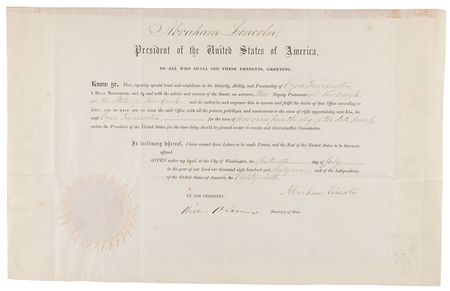 Abraham Lincoln,
President of the United States of America,
TO ALL WHO SHALL SEE THESE PRESENTS, GREETING:
Know ye, That, reposing special trust and confidence in the Integrity, Ability, and Punctuality of Ezra Farrington
I Have Nominated, and by and with the advice and consent of the Senate, do appoint, him Deputy Postmaster at Newburgh,
in the State of New York and do authorize and empower him to execute and fulfil the duties of that Office according to
Law; and to have and to hold the said Office, with all the powers, privileges, and emoluments to the same of right appertaining unto him, the
said Ezra Farrington for the term of four years from the day of the date hereof
unless the President of the United States for the time being should be pleased sooner to revoke and determine this Commission.
In testimony whereof, I have caused these Letters to be made Patent, and the Seal of the United States to be hereunto
affixed.
GIVEN under my hand, at the City of Washington, the day of July
in the year of our Lord one thousand eight hundred and sixty one and of the Independence
of the United States of America, the Eighty Sixth.
Abraham Lincoln
BY THE PRESIDENT:
William H. Seward Secretary of State.